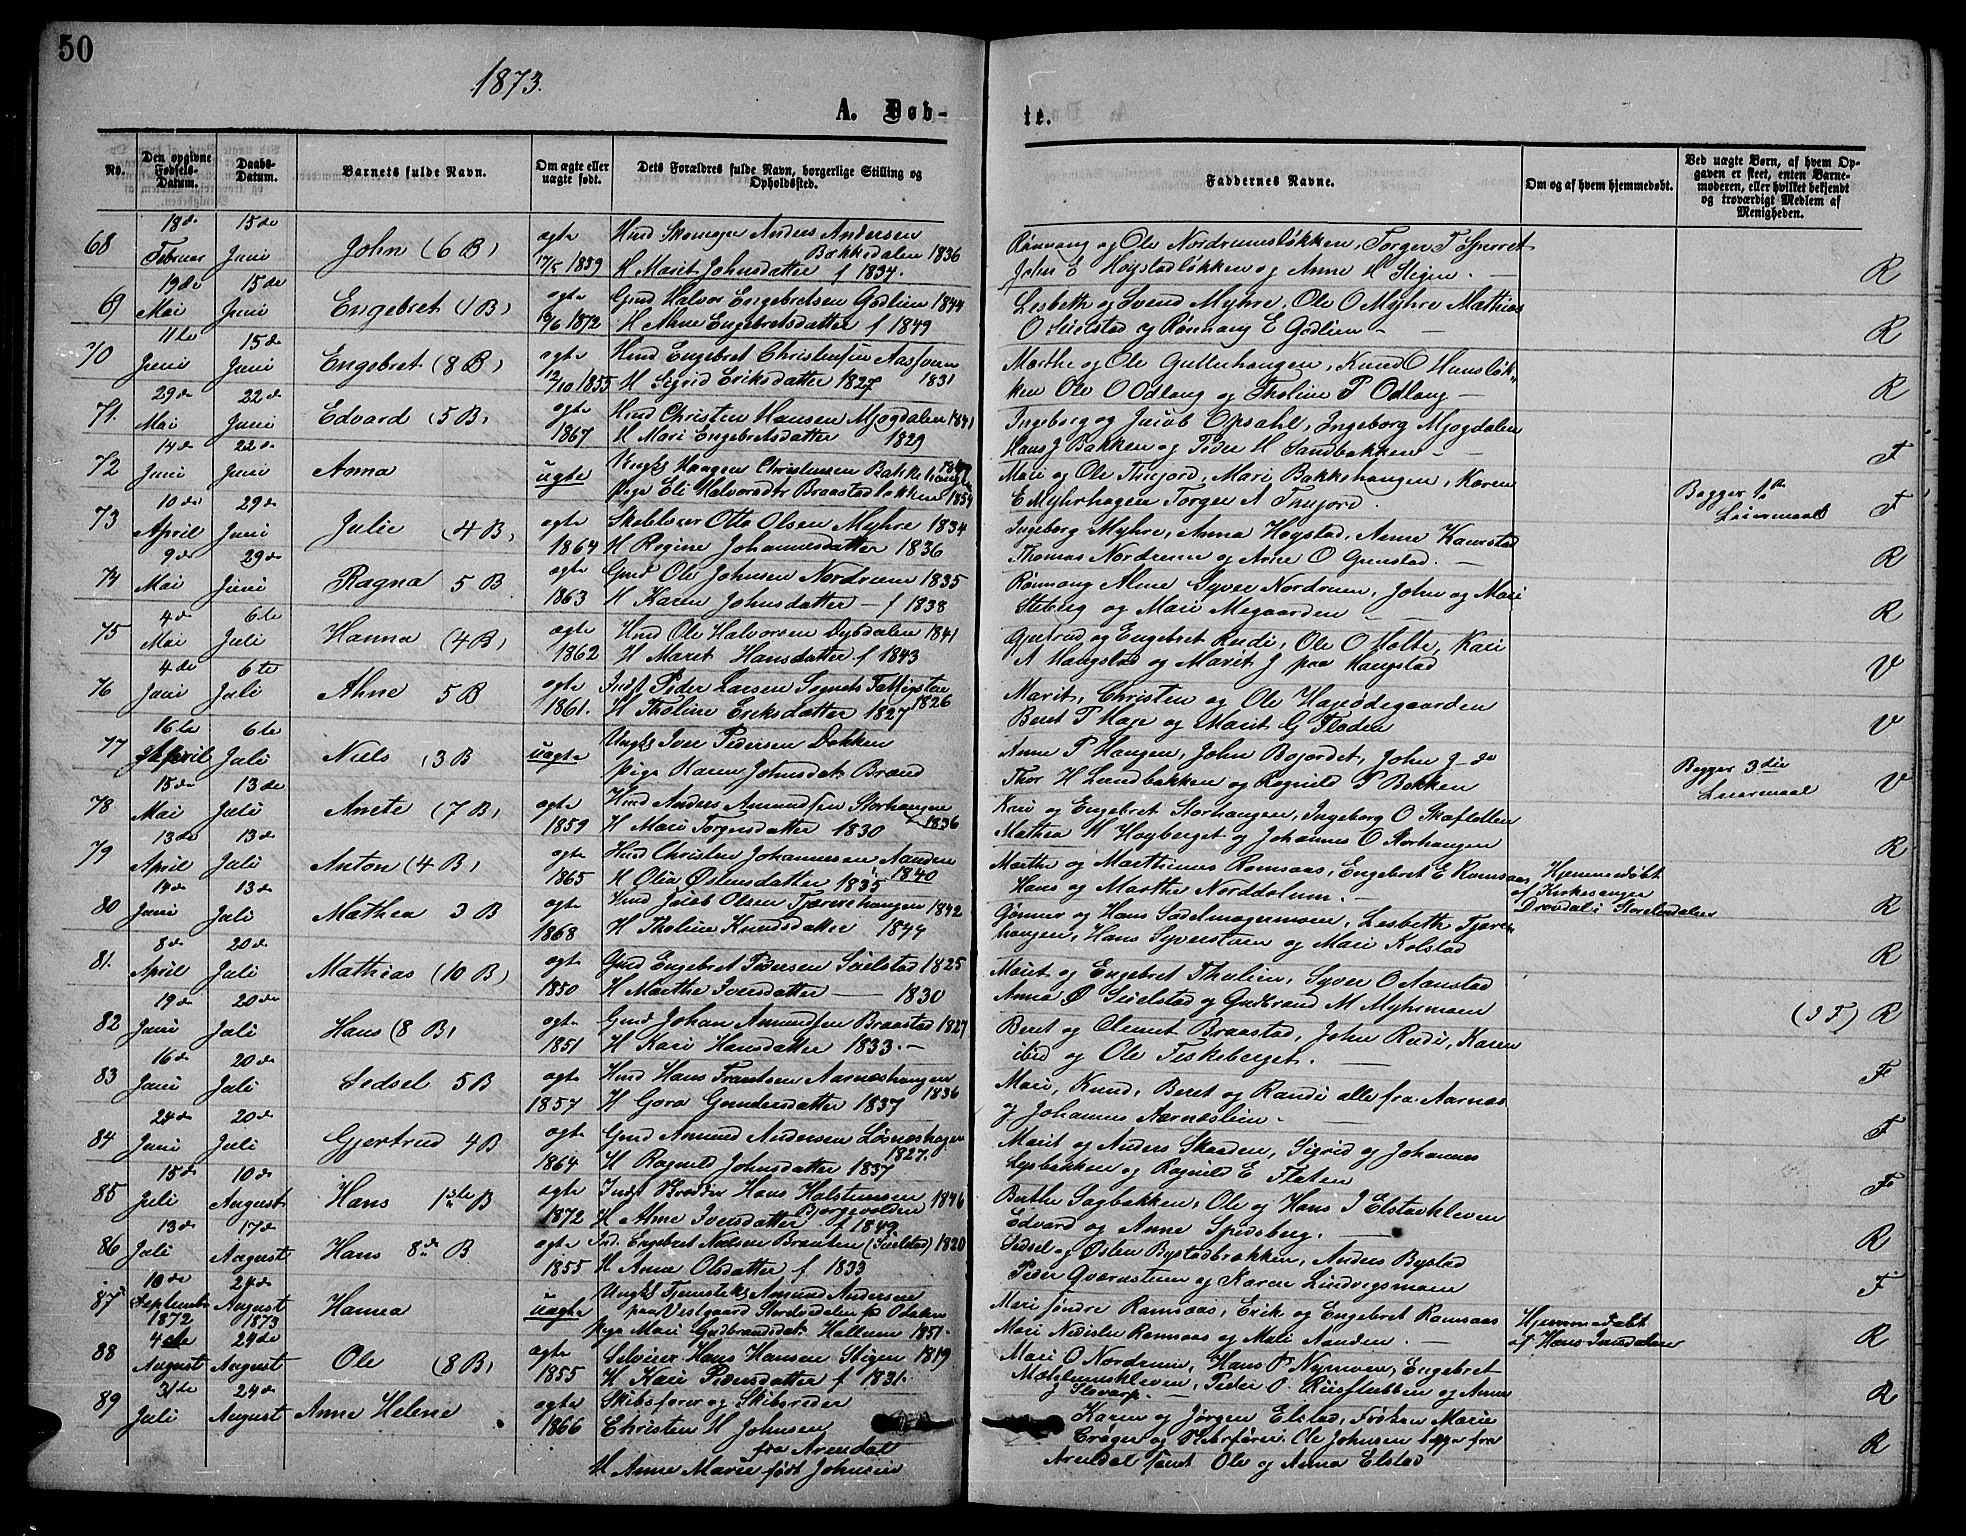 50
1873.
A. Døb-
te.
No.
Den opgivne Fødsels-Datum.
Daabs-Datum.
Barnets fulde Navn.
Om ægte eller uægte født.
Dets Forældres fulde Navn, borgerlige Stilling og Opholdssted.
Faddernes Navne.
Om og af hvem hjemmedøbt.
Ved uægte Børn, af hvem Opgaven er skeet, enten Barnemoderen, eller hvilket bekjendt og troværdigt Medlem af Menigheden.
68 18de Februar 15de Juni John (6 B) ægte 17/5 1859 Anders Andersen Bakkedalen 1836
H Marit Johnsdatter f 1834.
Rønnaug og Ole Nordrumsløkken, Torger T
John E Høystadløkken og Anne H Stigen. R
69 19de Mai 15de Juni Engebret (1 B) ægte 1872 Gmd Halvor Engebretsen Godlien 1844
H Ahne Engebretsdatter f 1849
Lisbeth og Svend Myhre, Ole O Myhre Mathias
O Seielstad og Rønnaug E Godlien R
70 11te Juni 15de Juni Engebret (8 B) ægte 12/10 1855 Hmd Engebret Christensen 1831
H Sigrid Eriksdatter 1827
Marthe og Ole Gullerhaugen, Knud O Hansløk-
ken Ole O Odlaug og Tholine P Odlaug R
71. 29de Mai 22de Juni Edvard (5 B) ægte 1867 Hmd Christen Hansen Mjogdalen 1841
H Mari Engebretsdatter 1829
Ingeborg og Jacob Opsahl, Ingeborg Mjogdalen
Hans J Bakken og Peder H Sandbakken F
72 14de Juni 22de Juni Anna uægte Ungk Haagen Christensen Bakkehaugen
Pige Eli Halvorsdtr Braastadløkken 1854
Mari og Ole Mari Bakkehaugen, Karen
E Myhrhagen Torger A
Begges 1ste Leiermaal F
73 10de April 29de Juni Julie (4 B) ægte 1864 Otto Olsen Myhre 1834
H Regine Johannesdatter 1836
Ingeborg Myhre, Anna Høystad, Anne Kamstad
Thomas Nordrum og Anne O R
74 9de Mai 29de Juni Ragna 5 B ægte 1863 Gmd Ole Johnsen Nordrum 1835
H Karen Johnsdatter f 1838
Rønnaug Ahne Syver Nordrum, John og Mari
Stuberg og Mari Megaarden R
75 4de Mai 6te Juli Hanna (4 B) ægte 1862 Hmd Ole Halvorsen Dybdalen 1841
H Maret Hansdatter f 1843
Gjertrud og Engebret Rudi, Ole O Holte, Kari
A Haugstad og Marit J paa Haugstad V
76 4de Juni 6te Juli Ahne 5 B ægte 1861. Indst Peder Larsen Sognets Fattigstue 1826
H Tholine Eriksdatter 1827
Marit, Christen og Ole Hageødegaarden
Beret P Hage og Marit G Floden V
77 16te April 6te Juli Niels (3 B uægte Ungk Iver Pedersen Dokken
Pige Karen Johnsdatt Brænd
Anne P Haugen, John Bojordet, John
Thor H Lundbakken og Ragnild P Bakken
Begges 3die Leiermaal V
78 15de Mai 13de Juli Anete (7 B) ægte 1859 Hmd Anders Amundsen Storhaugen 1836
H Mari Torgersdatter 1830
Kari og Engebret Storhaugen, Ingeborg O Skafletten
Mathea H Høyberget og Johannes O Storhaugen R
79 13de April 13de Juli Anton (4 B) ægte 1865 Hmd Christen Johannesen Aanden 1840
H Olia Østensdatter 1835
Marthe og Marthinus Romsaas, Engebret E Romsaas
Hans og Marthe Norddølum.
Hjemmedøbt af Kirkesanger Drøvdal i Storelvdalen R
80 14de Juni 13de Juli Mathea 3 B ægte 1868 Hmd Jacob Olsen Tjærnehaugen 1842
H Tholine Knudsdatter 1844
Gunner og Hans Sadelmagermoen, Lisbeth Tjærn-
haugen, Hans Syverstuen og Mari Kolstad R
81. 8de April 20de Juli Mathias (10 B) ægte 1850 Gmd Engebret Pedersen Seielstad 1825
H Marthe Iversdatter 1830
Marit og Engebret Thulien, Syver O Aanstad
Anna Ø Seielstad og Gudbrand M Myhrmoen (I F) R
82 19de Juni 20de Juli Hans (8 B) ægte 1851 Gmd Johan Amundsen Braastad 1827
H Kari Hansdatter 1833.
Beret og Clemet Braastad, John Rudi, Karen
ibid og Ole Fiskeberget. F
83 16de Juni 20de Juli Sidsel 5 B ægte 1857 Hmd Hans Frantsen Aarneshaugen 1836
H Goro Gundersdatter 1837
Mari, Knud, Beret og Randi alle fra Aarnæs
og Johannes Aarnæslien. F
84 24de Juni 20de Juli Gjertrud 4 B ægte 1864 Gmd Amund Andersen Løsneshagen 1827.
H Ragnild Johnsdatter 1837
Marit og Anders Skaaden, Sigrid og Johannes
Lysbakken og Ragnild E Flaten F
85 15de Juli 10de August Hans 1ste B ægte 1872 Indst Hans Halstensen Bjørgevolden 1846
H Ahne Iversdatter f 1849
Berthe Sagbakken, Ole og Hans I Elstadkleven
Edvard og Anne Spidsberg. R
86 13de Juli 17de August Hans 8de B ægte 1855 Ind. Engebret Nielsen Brænden (Seielstad) 1820
H Anne Olsdatter f 1833
Sidsel og Østen Bystadbrækken, Anders Bystad
Peder Qværnstuen og Karen Lindvigsmoen F
87 10de September 1872 24de August 1873 Hanna uægte Ungk Tjenestek Amund Andersen
paa Vestgaard Stordedalen fra
Pige Mari Gudbrandsdat. Hallum 1851.
Mari søndre Romsaas, Erik og Engebret Romsaas
Mari Nedistu Romsaas og Mali Aanden.
Hjemmedøbt af Hans R
88 4de August 24de August Ole (8 B) ægte 1855 Selveier Hans Hansen Stigen 1819
H Kari Pedersdatter f 1831.
Mari O Nordrum, Hans P Nymoen, Engebret
Mæhlumskleven, Peder O Riisflubben og Anne
J Slovarp. R
89 31te Juli 24de August Anne Helene ægte 1866 Skibsfører og Skibsreder
Christen H Johnsen
fra Arendal
H Anne Marie født Johnsen
Karen og Jørgen Elstad, Frøken Marie
Crøger og Ole Johnsen begge fra
Arendal samt Ole og Anna Elstad R